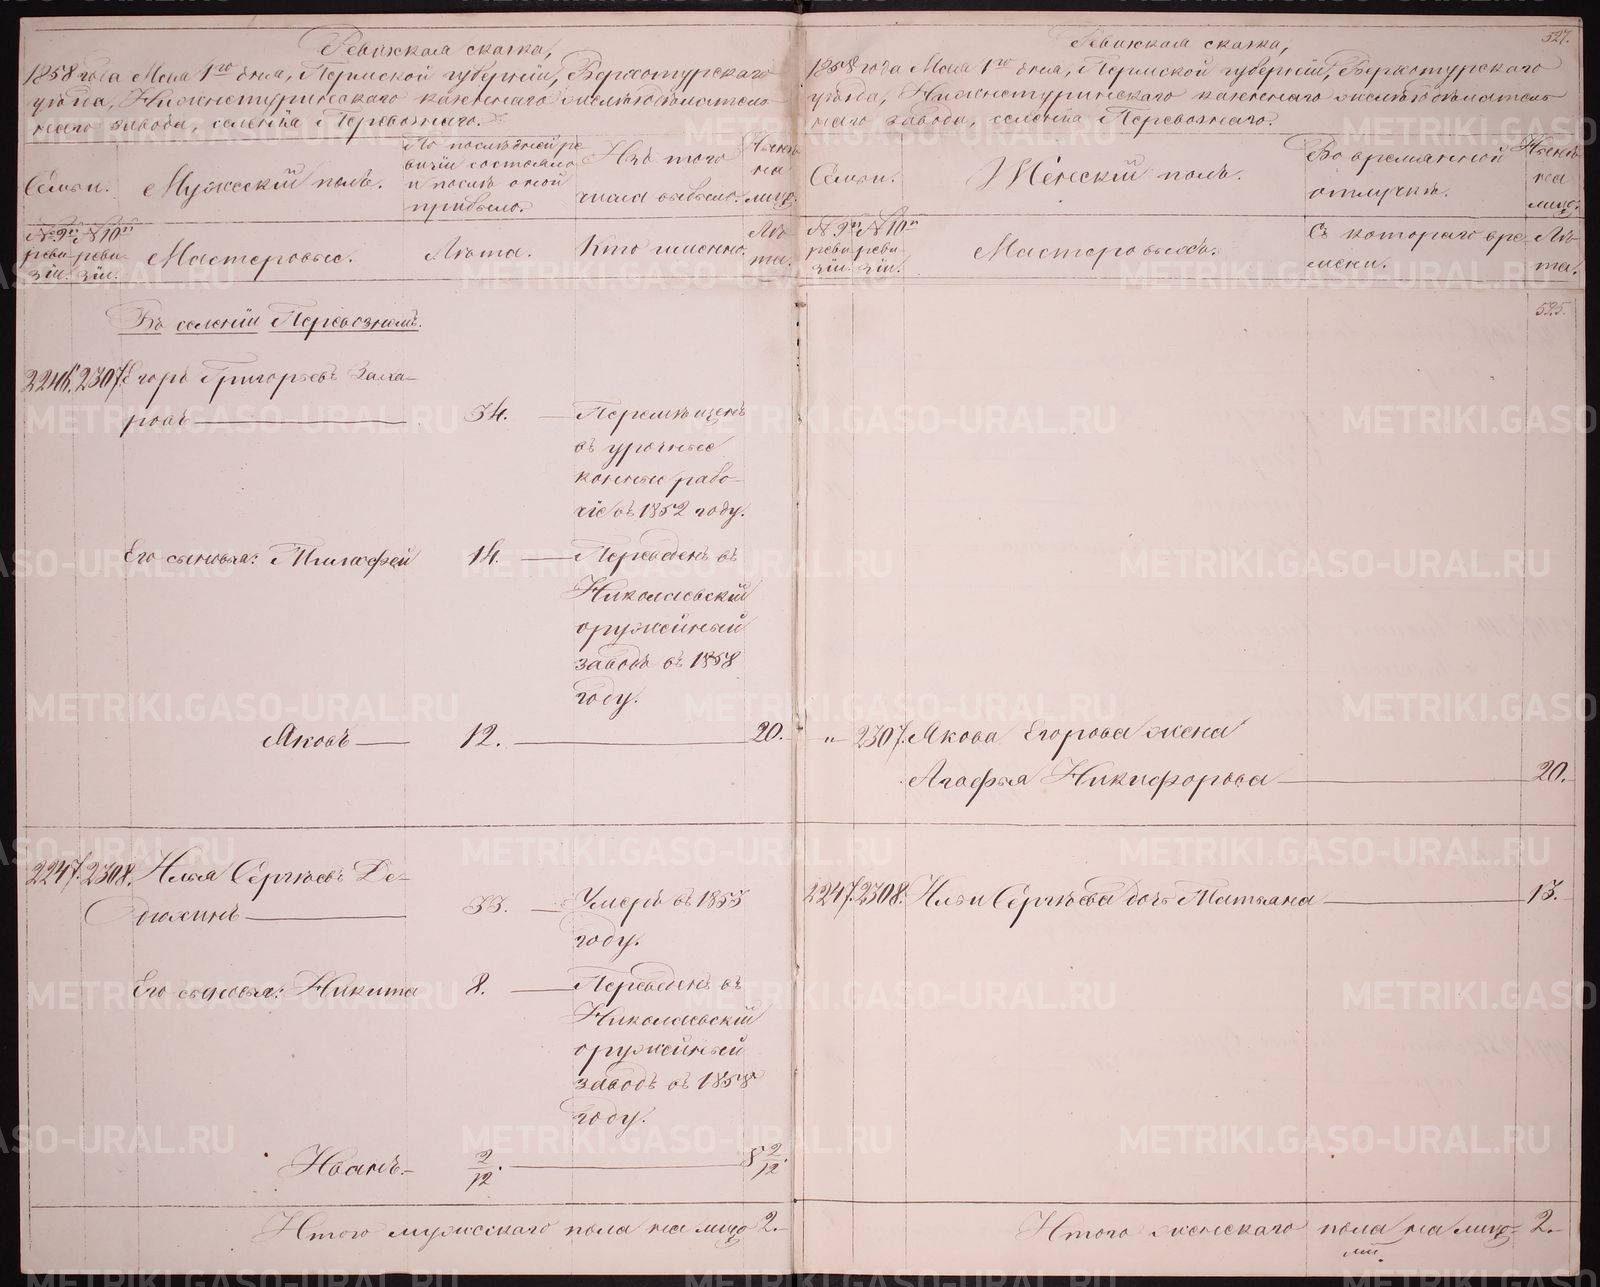 Ревижская сказка,
1858 года Маия 1го дня, Пермской губернiи, Верхотурскаго
уѣзда, Нижнетуринскаго казеннаго желѣзодѣлатель
наго завода, селенiя Перевознаго.
Семьи.
Мужескiй полъ.
По послѣдней ре
визiи состояло
и послѣ оной
прибыло.
Изъ того
числа выбыло.
Нынѣ
на
лицо.
№ 9й
реви
зiи.
№ 10й
реви
зiи.
Мастеровые.
Лѣта.
Кто именно.
Лѣ
та.
Въ селенiи Перевозномъ.
2246. 2307. Егоръ Григорьевъ Заха-
ровъ 34. Перемѣщенъ
въ урочные
конные рабо-
чiе въ 1852 году.
Его сыновья: Тимофей 14. Переведенъ въ
Николаевскiй
оружейный
заводъ въ 1858
году.
Яковъ 12. 20.
2247. 2308. Илья Сергѣевъ Де-
дюхинъ 33. Умеръ въ 1853
году.
Его сыновья: Никита 8. Переведенъ въ
Николаевскiй
оружейный
заводъ въ 1858
году.
Иванъ. 2/12. 8 2/12.
Итого мужескаго пола на лицо 2.
527.
Ревижская сказка,
1858 года Маия 1го дня, Пермской губернiи, Верхотурскаго
уѣзда, Нижнетуринскаго казеннаго желѣзодѣлатель
наго завода, селенiя Перевознаго.
Семьи.
Женскiй полъ.
Во временной
отлучкѣ.
Нынѣ
на
лицо.
№ 9й
реви
зiи.
№ 10й
реви
зiи.
Мастеровыхъ.
Съ котораго вре
мени.
Лѣ
та.
525.
" 2307. Якова Егорова жена
Агафья Никифорова 20.
2247. 2308. Ильи Сергѣева дочь Татьяна 13.
Итого женскаго пола на лицо 2.
METRIKI.GASO-URAL.RU